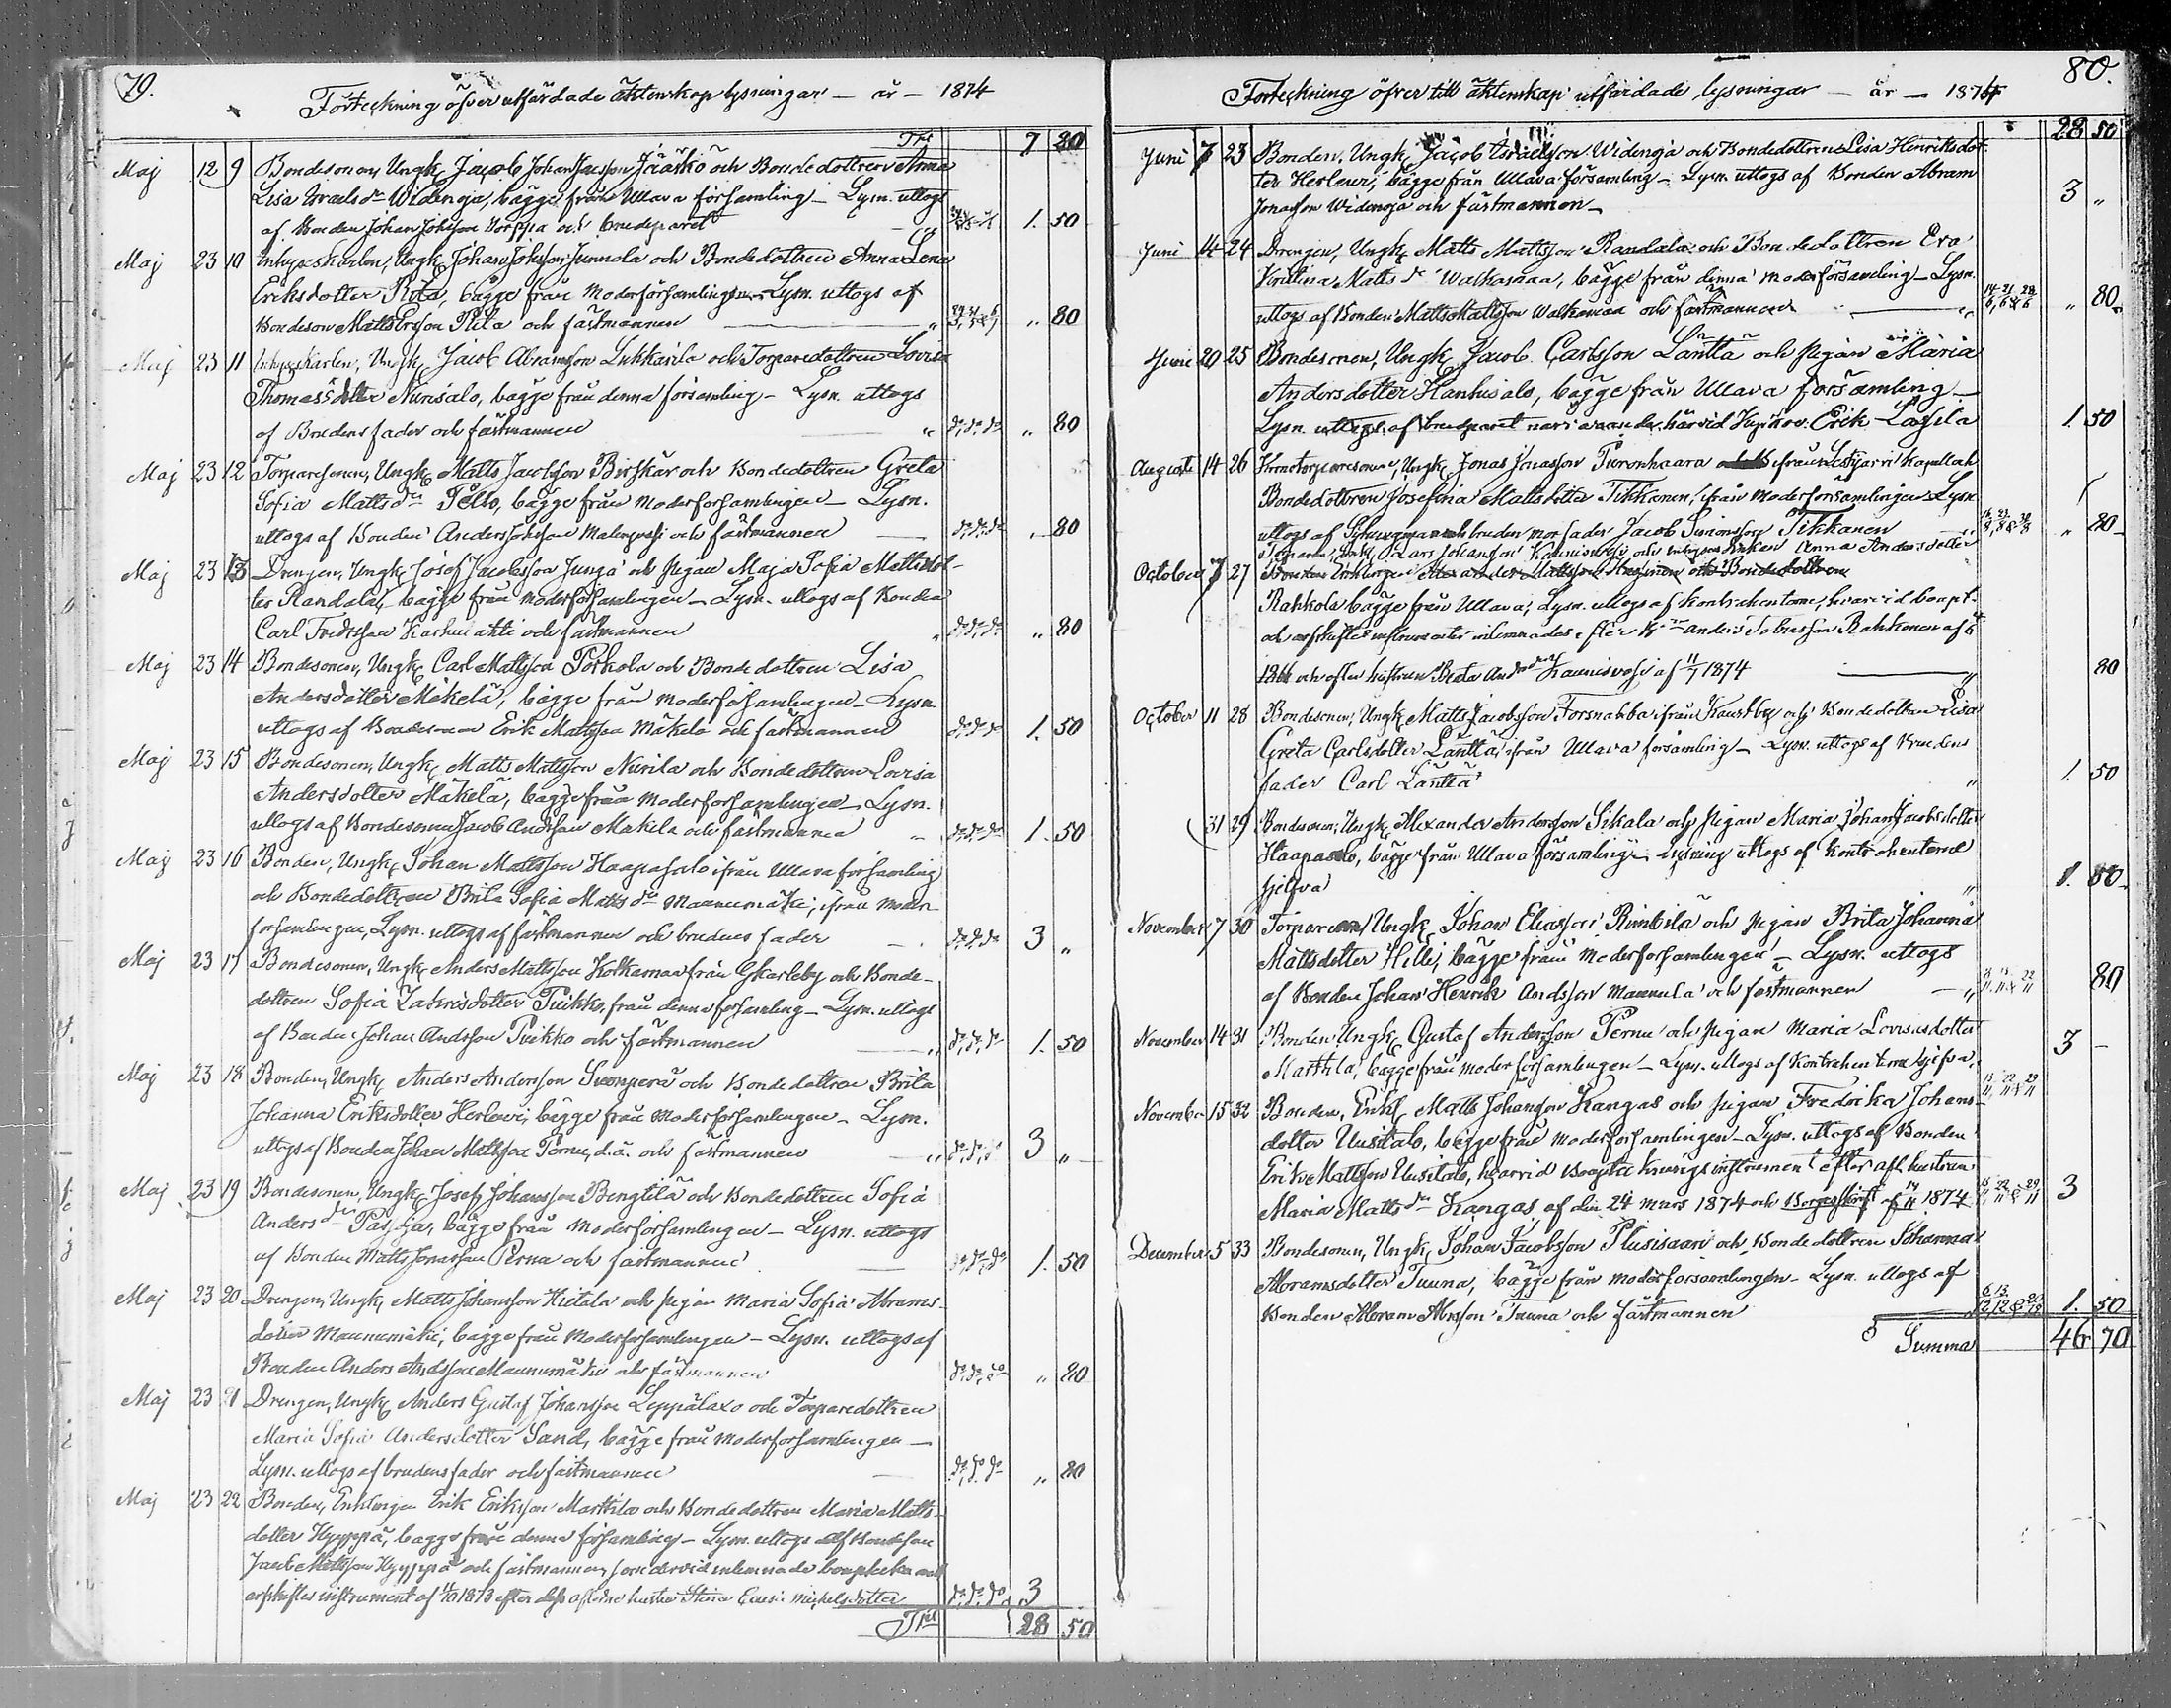 79.
Förteckning öfver utfärdade äktenskap lysningar — år — 1874
Trt 7 80
Maj 12 9 Bondesonen, Ungk. Jacob Johan Jacsson Jäärkö och Bondedottren Anna
Lisa Israels dr Widenoja, bägge från Ullava församling — Lysn. uttogs
af Bonden Johan Johsson Norppa och brudparet 1. 50
Maj 23 10 Inhyseskarlen, Ungk. Johan Johsson Junnola och Bondedottren Anna Lena
Eriksdotter Rita, bägge från Moderförsamlingen — Lysn. uttogs af
Bondeson Matts Ersson Rita och fästmannen " 80
Maj 23 11 Inhyseskarlen, Ungk. Jacob Abramsson Lukkarila och Torparedottren Lovisa
Thomasdotter Nurisalo, bägge från denna församling — Lysn. uttogs
af Brudens fader och fästmannen do do do " 80
Maj 23 12 Torparesonen, Ungk. Matts Jacobsson Birskär och Bondedottren Greta
Sofia Matts dr Pello, bägge från moderförsamlingen — Lysn.
uttogs af Bonden Anders Johsson och fästmannen do do do " 80
Maj 23 13 Drengen, Ungk. Josef Jacobsson Junga och Pigan Maja Sofia Mattsdot-
ter Randala, bägge från moderförsamlingen — Lysn. uttogs af Bonden
Carl Fredrsson och fästmannen " do do do " 80
Maj 23 14 Bondesonen, Ungk. Carl Mattsson Porkola och Bondedottren Lisa
Andersdotter Mäkelä, bägge från moderförsamlingen — Lysn.
uttogs af Bondesonen Erik Mattsson Mäkelä och fästmannen do do do 1. 50
Maj 23 15 Bondesonen, Ungk. Matts Mattsson Nurila och Bondedottren Lovisa
Andersdotter Mäkelä, bägge från moderförsamlingen — Lysn.
uttogs af Bondesonen Jacob Andsson Mäkelä och fästmannen do do do 1. 50
Maj 23 16 Bonden, Ungk. Johan Mattsson Haapasalo ifrån Ullava församling
och Bondedottren Brita Sofia Matts dr Maunumäki, ifrån moder-
församlingen, Lysn. uttogs af fästmannen och brudens fader do do do 3 "
Maj 23 17 Bondesonen, Ungk. Anders Mattsson Kolkamaa från Gkarleby och Bonde-
dottren Sofia Zakrisdotter Puikko, från denna församling — Lysn. uttogs
af Bonden Johan Andsson Puikko och fästmannen " do do do 1. 50
Maj 23 18 Bonden, Ungk. Anders Andersson Suonperä och Bondedottren Brita
Johanna Eriksdotter Herlevi, bägge från moderförsamlingen — Lysn.
uttogs af Bonden Johan Mattsson Pernu, d.ä. och fästmannen " do do do 3 "
Maj 23 19 Bondesonen, Ungk. Josef Johansson Bengtilä och Bondedottren Sofia
Anders dr bägge från moderförsamlingen — Lysn. uttogs
af Bonden Matts Jonasson Perna och fästmannen do do do 1. 50
Maj 23 20 Drengen, Ungk. Matts Johansson Hietala och Pigan Maria Sofia Abrams-
dotter Maunumäki, bägge från moderförsamlingen — Lysn. uttogs af
Bonden Anders Andsson Maunumäki och fästmannen do do do " 80
Maj 23 21 Drengen, Ungk. Anders Gustaf Johansson Leppälaxo och Torparedottren
Maria Sofia Andersdotter Sand, bägge från moderförsamlingen —
Lysn. uttogs af brudens fader och fästmannen do do do " 80
Maj 23 22 Bonden, Enklingen Erik Eriksson Marttila och Bondedottren Maria Matts-
dotter Hyyppä, bägge från denna församling — Lysn. uttogs af Bondeson
Jacob Mattsson Hyyppä och fästmannen, som dervid inlemnade och
arfskiftes instrument af 1873 efter dess aflidne hustru Michelsdotter do do do 3
Trt 28 50
80.
Förteckning öfver till äktenskap utfärdade lysningar — år — 1874
28 50
Juni 7 23 Bonden, Ungk. Jacob Israelsson Widenoja och Bondedottren Lisa Henriksdot-
ter Herlevi, bägge från Ullava församling — Lysn. uttogs af Bonden Abram
Jonasson Widenoja och fästmannen — 3 "
Juni 14 24 Drengen, Ungk. Matts Mattsson Randala och Bondedottren Eva
Kristina Matts dr Walkamaa, bägge från denna moderförsamling — Lysn.
uttogs af Bonden Matts Mattsson Walkamaa och fästmannen " 80
Juni 20 25 Bondesonen, Ungk. Jacob Carlsson Läntta och Pigan Maria
Andersdotter Hanhisalo, bägge från Ullava församling —
Lysn. uttogs af brudparet närvarande härvid Erik Lassila 1. 50
Augusti 14 26 Kronotorparesonen, Ungk. Jonas Jonasson Puronhaara ifrån Lestijärvi Kapell och
Bondedottren Josefina Mattsdotter Tikkanen, ifrån moderförsamlingen Lysn.
uttogs af och bruden morfader Jacob Simonsson Tikkanen " 80
Torparen, Enkl. Lars Johansson Kaunisvesi och Anna Andersdotter
October 7 27
Rahkola bägge från Ullava; Lysn. uttogs af kontrahenterne, hvarvid boupt.
och arfskiftes instrumenter inlemnades efter Anders Tobiasson Rahkonen af
och efter hustrun Beata And dr Kaunisvesi af 11/7 1874 " 80
October 11 28 Bondesonen, Ungk. Matts Jacobsson Forsnabba ifrån Kaustby och Bondedottren Lisa
Greta Carlsdotter Läntta, ifrån Ullava församling — Lysn. uttogs af Brudens
fader Carl Läntta " 1. 50
31 29 Bondesonen, Ungk. Alexander Andersson Sikala och Pigan Maria Johan Jacobsdotter
Haapasalo, bägge från Ullava församling — Lysning uttogs af Kontrahenterne
sjelfva " 1. 50
November 7 30 Torparen, Ungk. Johan Eliasson Rimbilä och Pigan Brita Johanna
Mattsdotter Hilli, bägge från moderförsamlingen — Lysn. uttogs
af Bonden Johan Henrik Andsson Mannula och fästmannen — " 80
November 14 31 Bonden Ungk. Gustaf Andersson Pernu och Pigan Maria Lovisa
Marttila, bägge från moderförsamlingen — Lysn. uttogs af Kontrahenterna sjelfva. 3 —
November 15 32 Bonden, Enkl. Matts Johansson Kangas och Pigan Fredrika Johans-
dotter Uusitalo, bägge från moderförsamlingen — Lysn. uttogs af Bonden
Erik Mattsson Uusitalo, hvarvid instrument efter afl. hustrun
Maria Matts dr Kangas af den 24 mars 1874 och Borgesskrift af 14/11 1874 3
December 5 33 Bondesonen, Ungk. Johan Jacobsson Plusisaari och Bondedottren Johanna
Abramsdotter Tuuna, bägge från moderförsamlingen — Lysn. uttogs af
Bonden Abram Abrsson Tuuna och fästmannen 1. 50
Summa 46 70